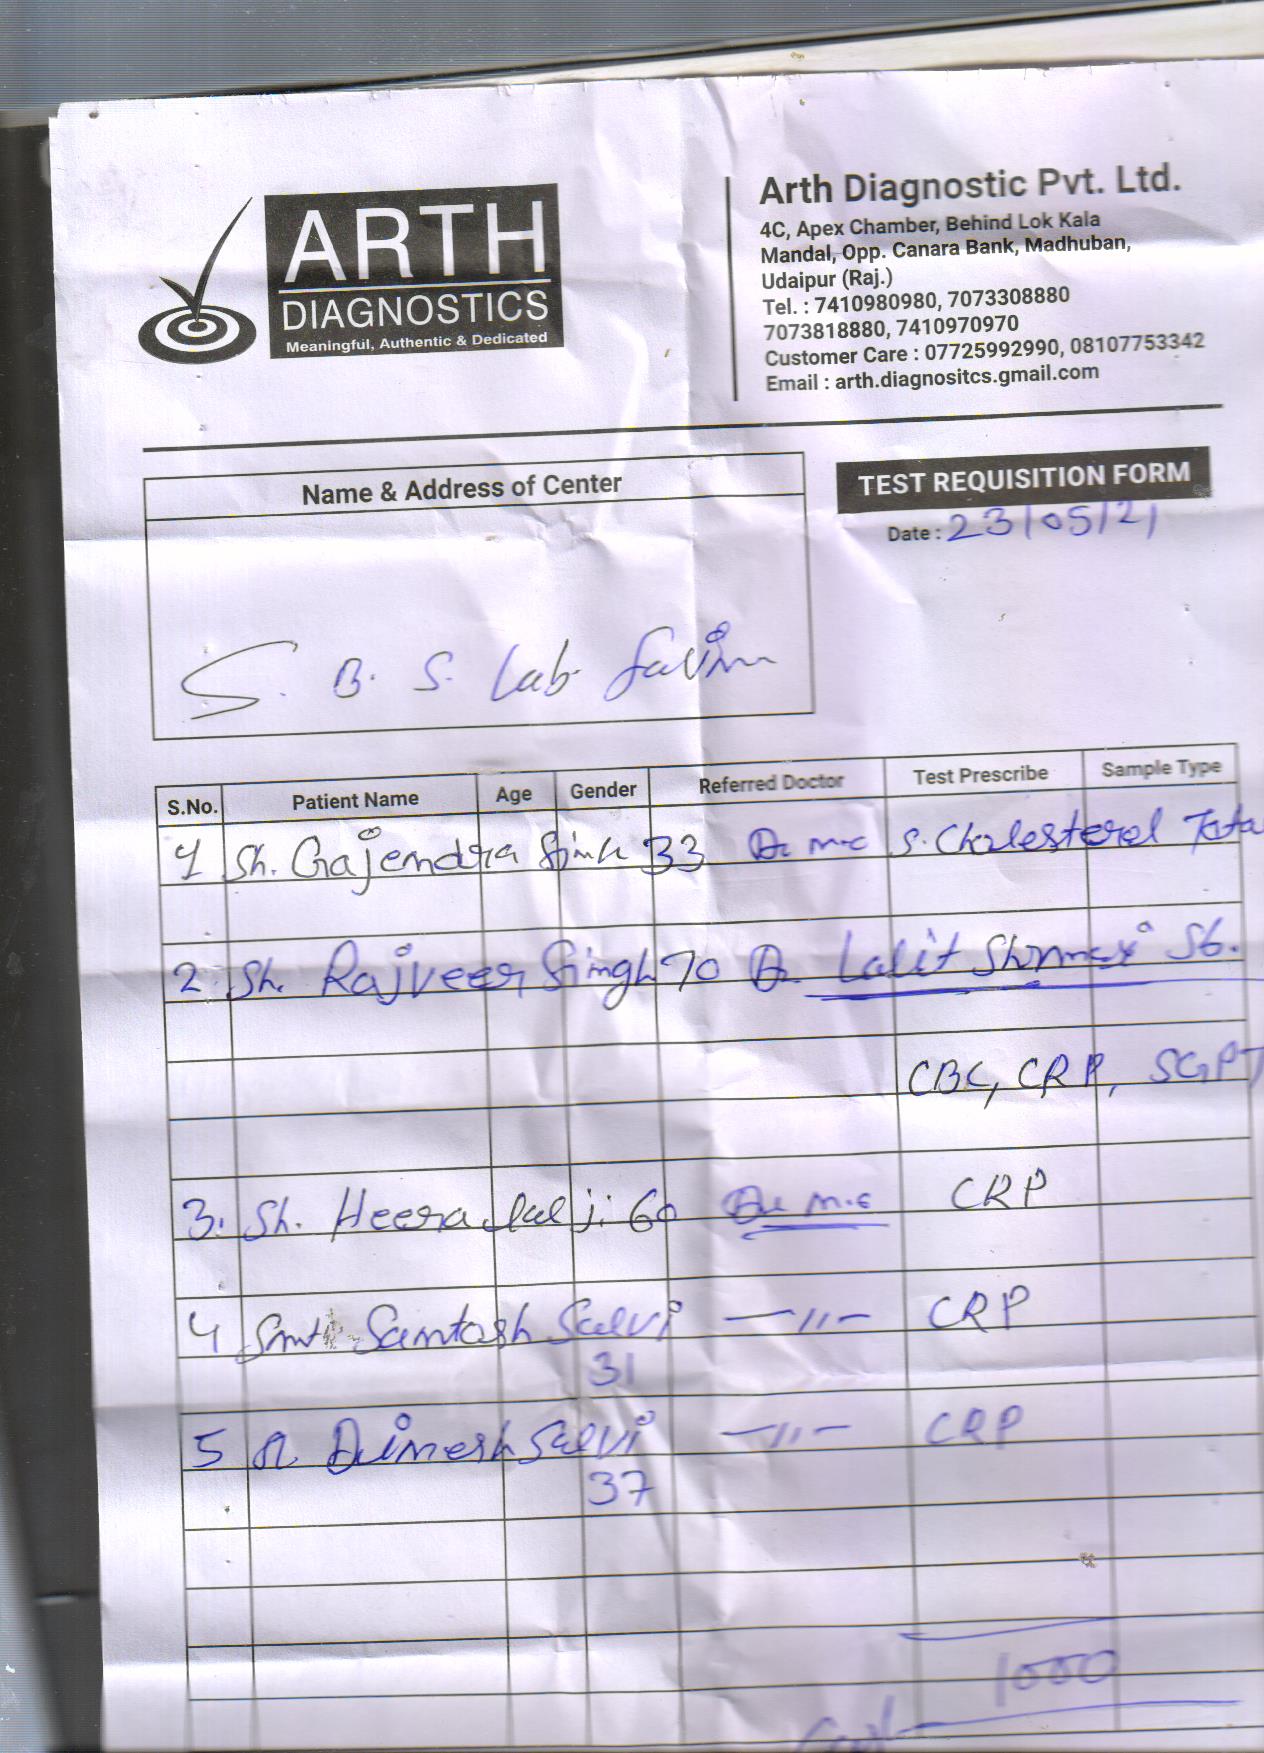 ARTH
DIAGNOSTICS
Meaningful, Authentic & Dedicated
Arth Diagnostic Pvt. Ltd.
4C, Apex Chamber, Behind Lok Kala
Mandal, Opp. Canara Bank, Madhuban,
Udaipur (Raj.)
Tel. : 7410980980, 7073308880
7073818880, 7410970970
Customer Care : 07725992990, 08107753342
Email : arth.diagnositcs.gmail.com
Name & Address of Center
TEST REQUISITION FORM
Date : 23/05/21
S. B. S. Lab
S.No. Patient Name Age Gender Referred Doctor Test Prescribe Sample Type
1 Sh. Gajendra 33 Dr m.c S. Cholesterol
2. Sh. Rajveer Singh 70 Dr Lalit
CBC, CRP, SGPT
3. Sh. Heera lal ji 60 Dr m.c CRP
4 Smt. Santosh Salvi —〃— CRP
31
5 Dinesh Salvi —〃— CRP
37
1000